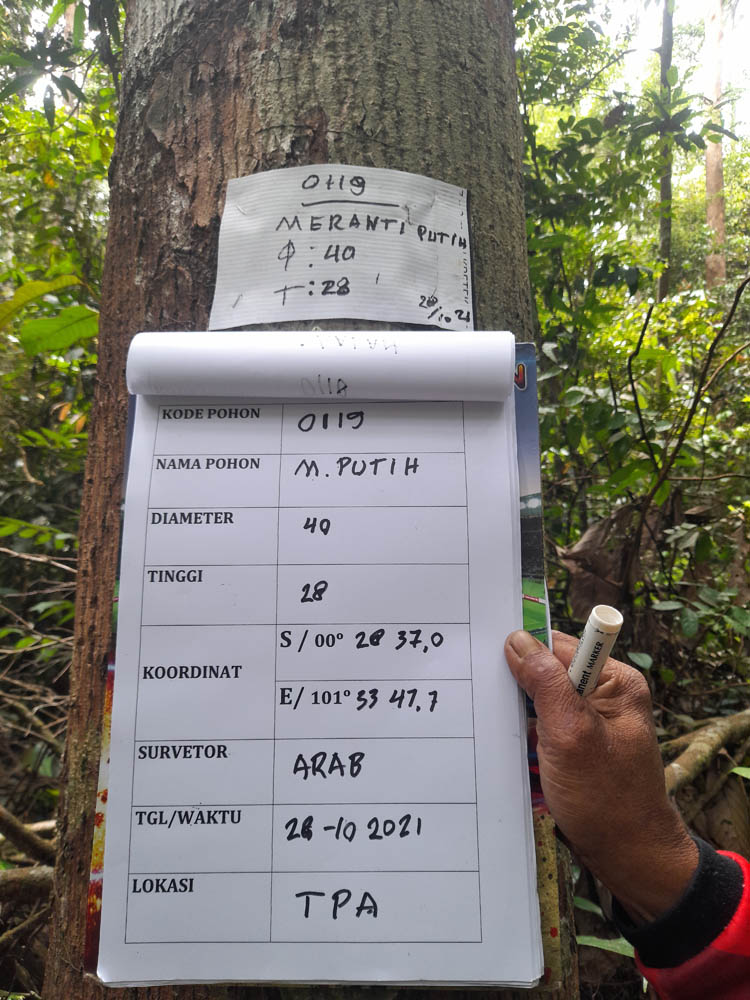 0119
MERANTI PUTIH
Φ : 40
T : 28
28/10 21
KODE POHON 0119
NAMA POHON M. PUTIH
DIAMETER 40
TINGGI 28
KOORDINAT S / 00° 28 37,0
E/ 101° 33 47,7
SURVETOR ARAB
TGL/WAKTU 28 -10 2021
LOKASI TPA
MARKER